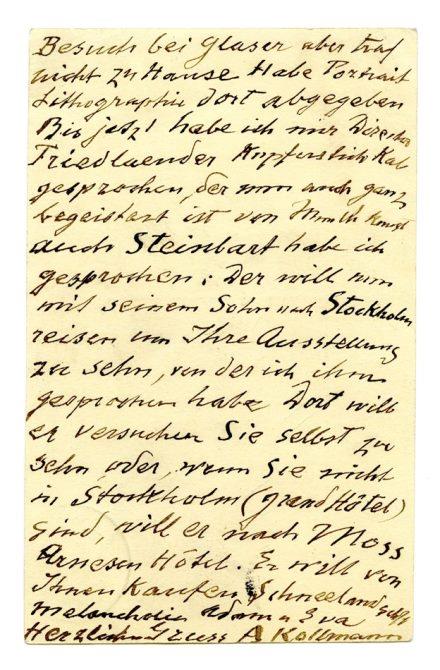 Besuch bei Glaser aber traf
nicht zu Hause Habe Portrait
Lithographie dort abgegeben
Bis jetzt habe ich nur Direktor
Friedlaender Kupferstich Kab
gesprochen, der nun auch ganz
begeistert ist von Munch Kunst
auch Steinbart habe ich
gesprochen: Der will nun
mit seinem Sohn nach Stockholm
reisen um Ihre Ausstellung
zu sehn, von der ich ihm
gesprochen habe Dort will
er versuchen Sie selbst zu
sehn, oder, wenn Sie nicht
in Stockholm (grand Hôtel)
sind, will er nach Moss
Arnesen Hôtel. Er will von
Ihnen kaufen Schneeland
Melancholie Adam u Eva
Herzlichen Gruss A Kollmann